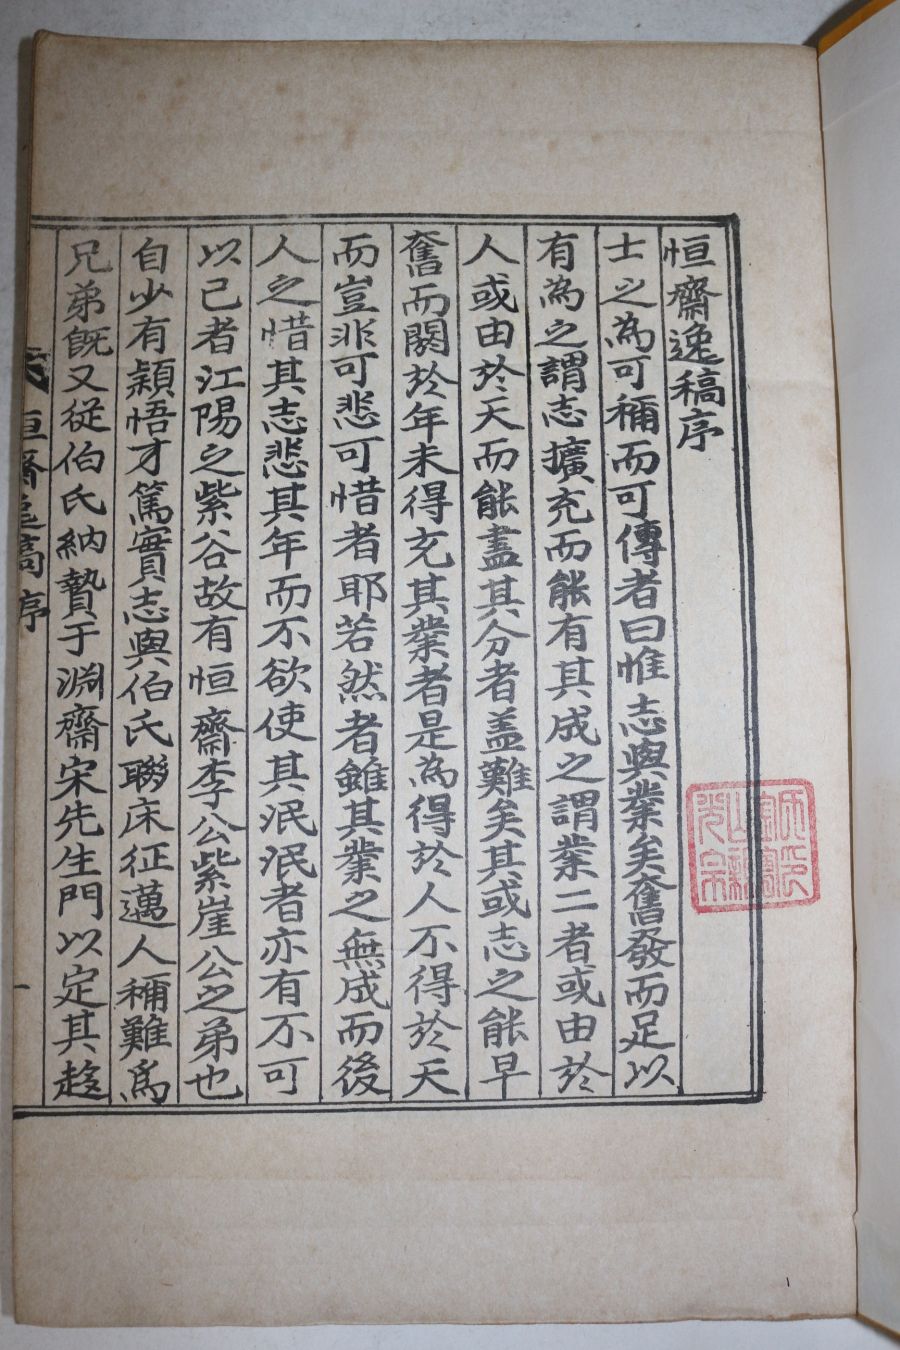 恒齋逸稿序
士之為可稱而可傳者曰惟志與業矣奮發而足以
有為之謂志擴充而能有其成之謂業二者或由於
人或由於天而能盡其分者盖難矣其或志之能早
奮而闕於年未得充其業者是為得於人不得於天
而豈非可悲可惜者耶若然者雖其業之無成而後
人之惜其志悲其年而不欲使其泯泯者亦有不可
以己者江陽之紫谷故有恒齋李公紫崖公之弟也
自少有穎悟才篤實志與伯氏聯床征邁人稱難爲
兄弟旣又從伯氏納贄于淵齋宋先生門以定其趍
恒齋逸稿序
一